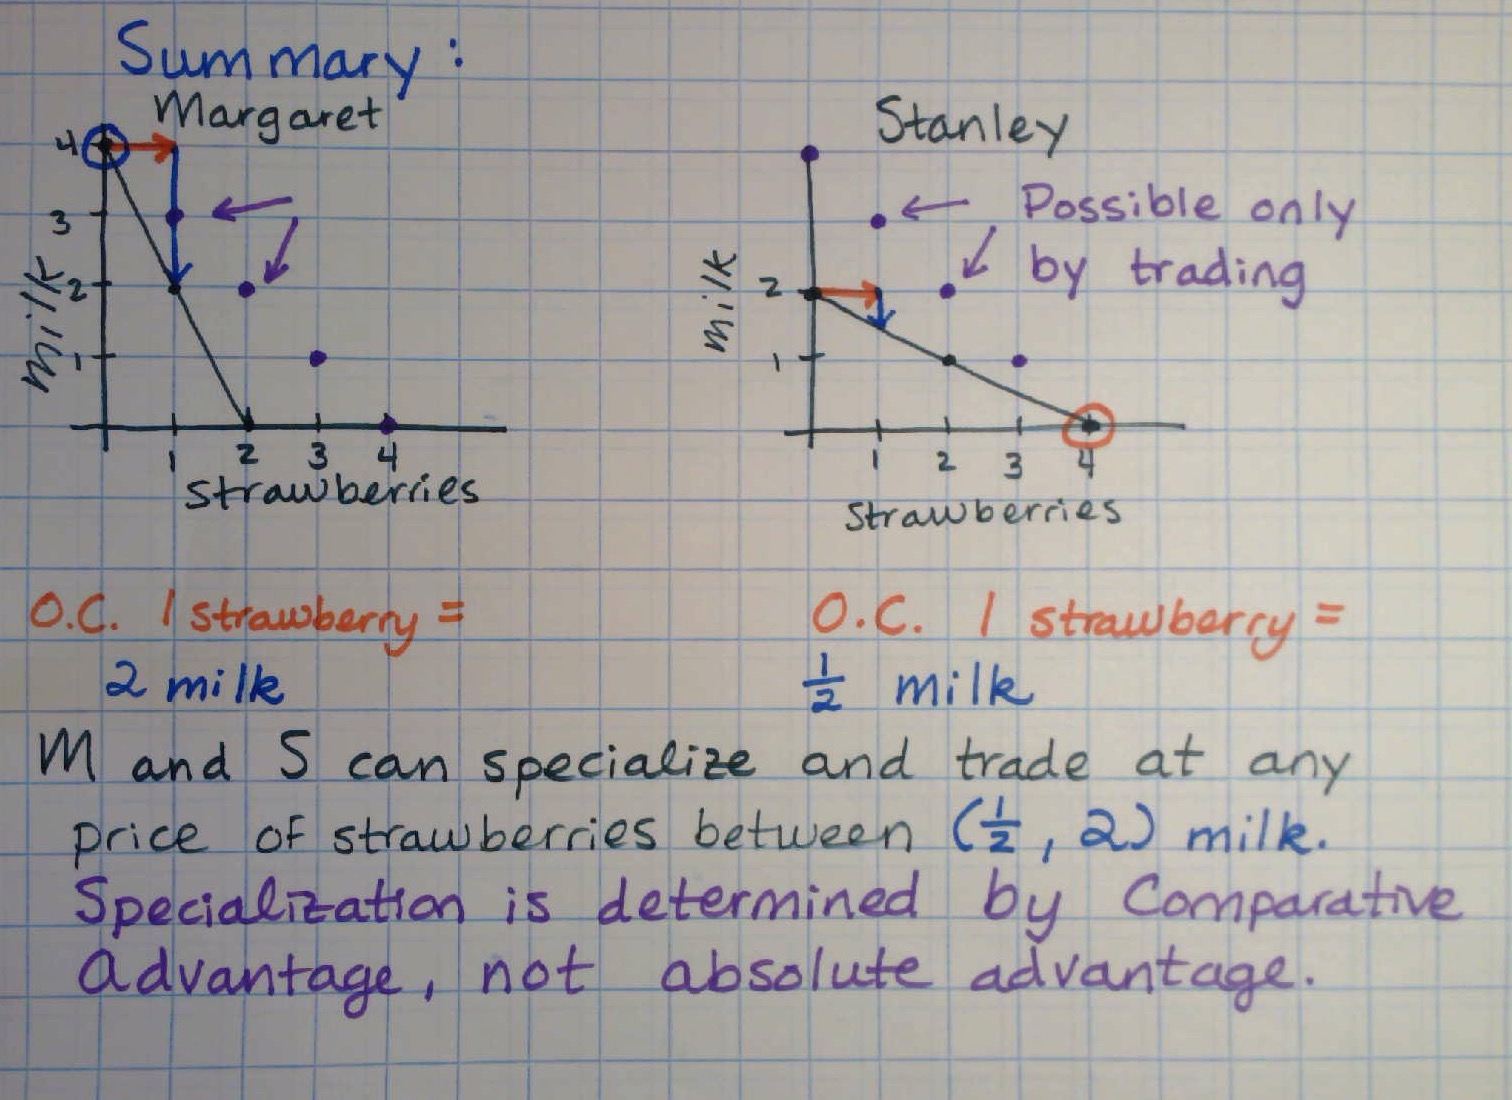 Summary:
Margaret
Stanley
4
3
2
1
milk
1 2 3 4
strawberries
Possible only
by trading
2
1
milk
1 2 3 4
strawberries
O.C. 1 strawberry =
2 milk
O.C. 1 strawberry =
1/2 milk
M and S can specialize and trade at any
price of strawberries between (1/2, 2) milk.
Specialization is determined by Comparative
advantage, not absolute advantage.